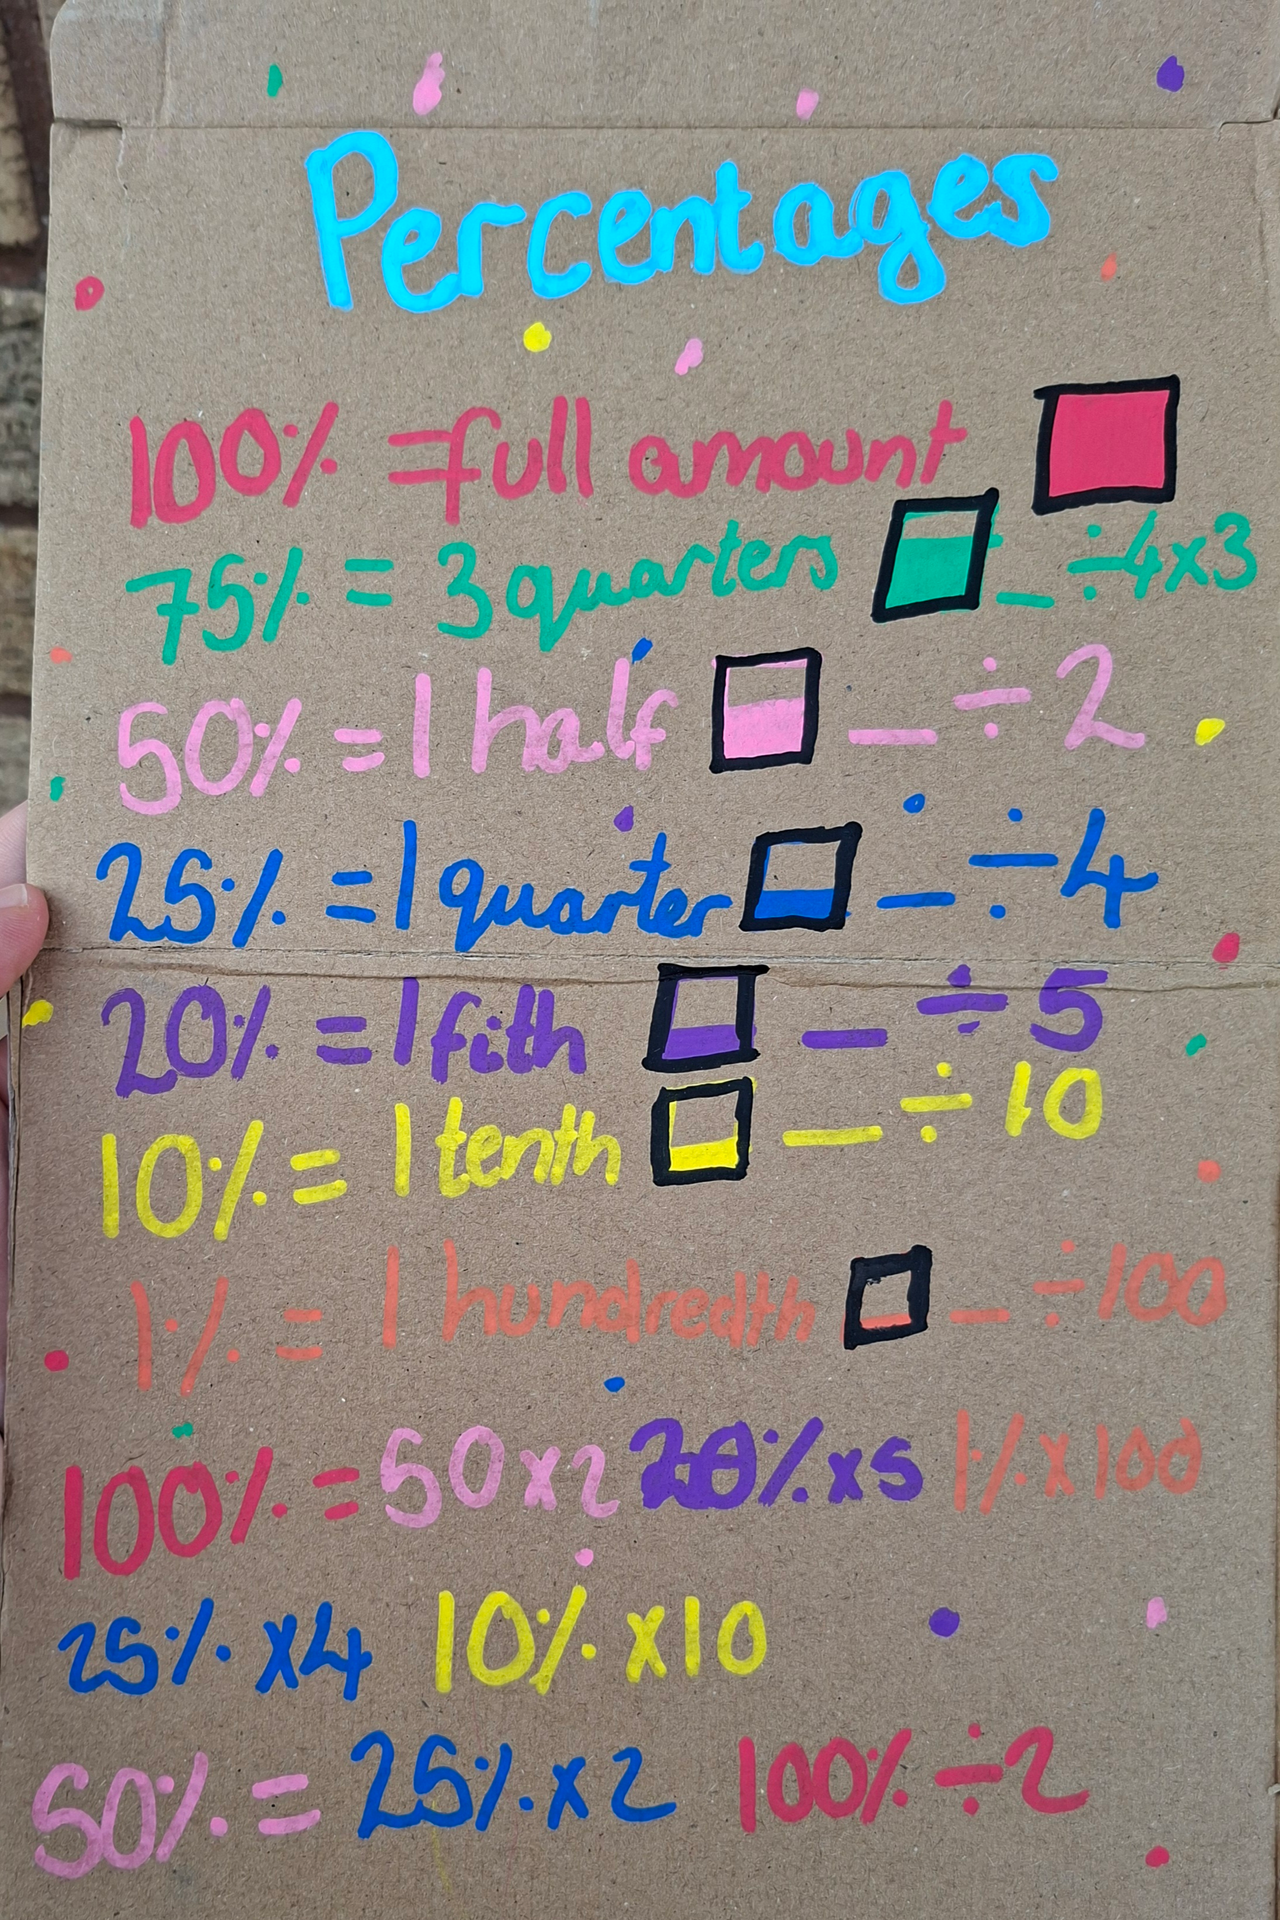 Percentages
100% = full amount
75% = 3 quarters _ ÷4x3
50% = 1 half _ ÷ 2
25% = 1 quarter _ ÷ 4
20% = 1 fith _ ÷ 5
10% = 1 tenth _ ÷ 10
1% = 1 hundredth _ ÷100
100% = 50x2 20% x5 1% x100
25% x4 10% x10
50% = 25% x2 100% ÷2